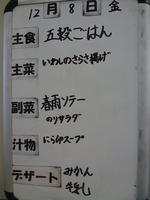 12月8日金
主食 五穀ごはん
主菜 いわしのさらさ揚げ
副菜 春雨ソテー
のりサラダ
汁物 にら卵スープ
デザート みかん
牛乳